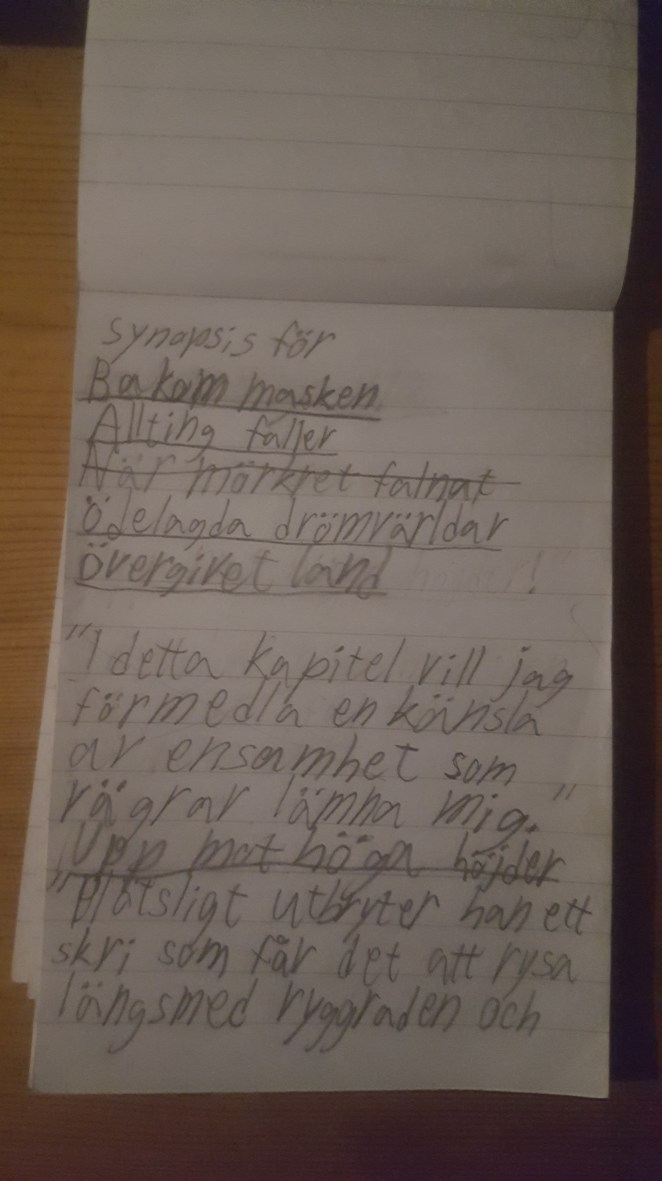 Synopsis för
Bakom masken
Allting faller
När mörkret falnat
Ödelagda drömvärldar
övergivet land !
"I detta kapitel vill jag
förmedla en känsla
av ensamhet som
vägrar lämna mig."
Upp mot höga höjder
"Plötsligt utbryter han ett
skri som får det att rysa
längsmed ryggraden och